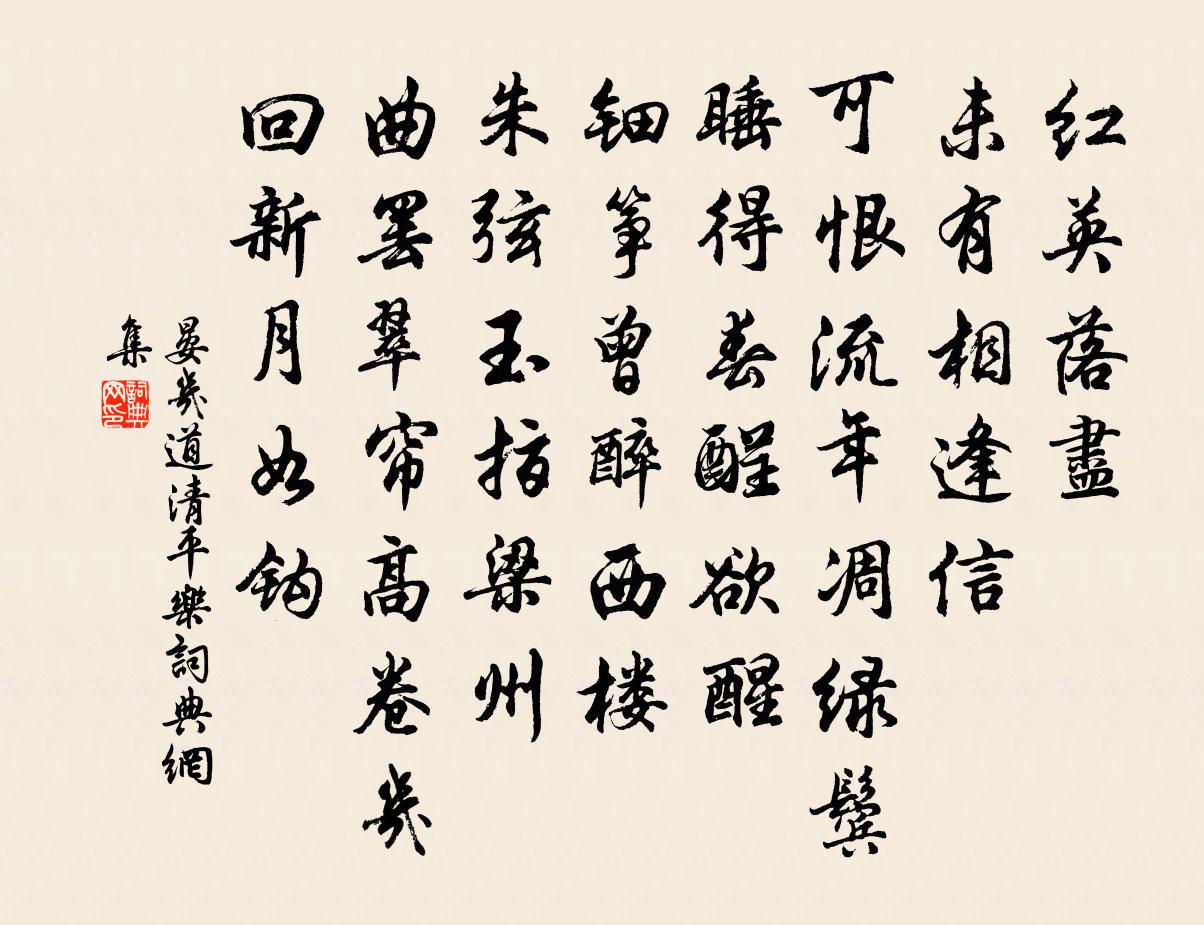 红英落盡
未有相逢信
可恨流年凋绿鬓
睡得春酲欲醒
钿筝曾醉西楼
朱弦玉指梁州
曲罢翠帘高卷几
回新月如钩
晏幾道清平樂詞典網
集
詞典
网印